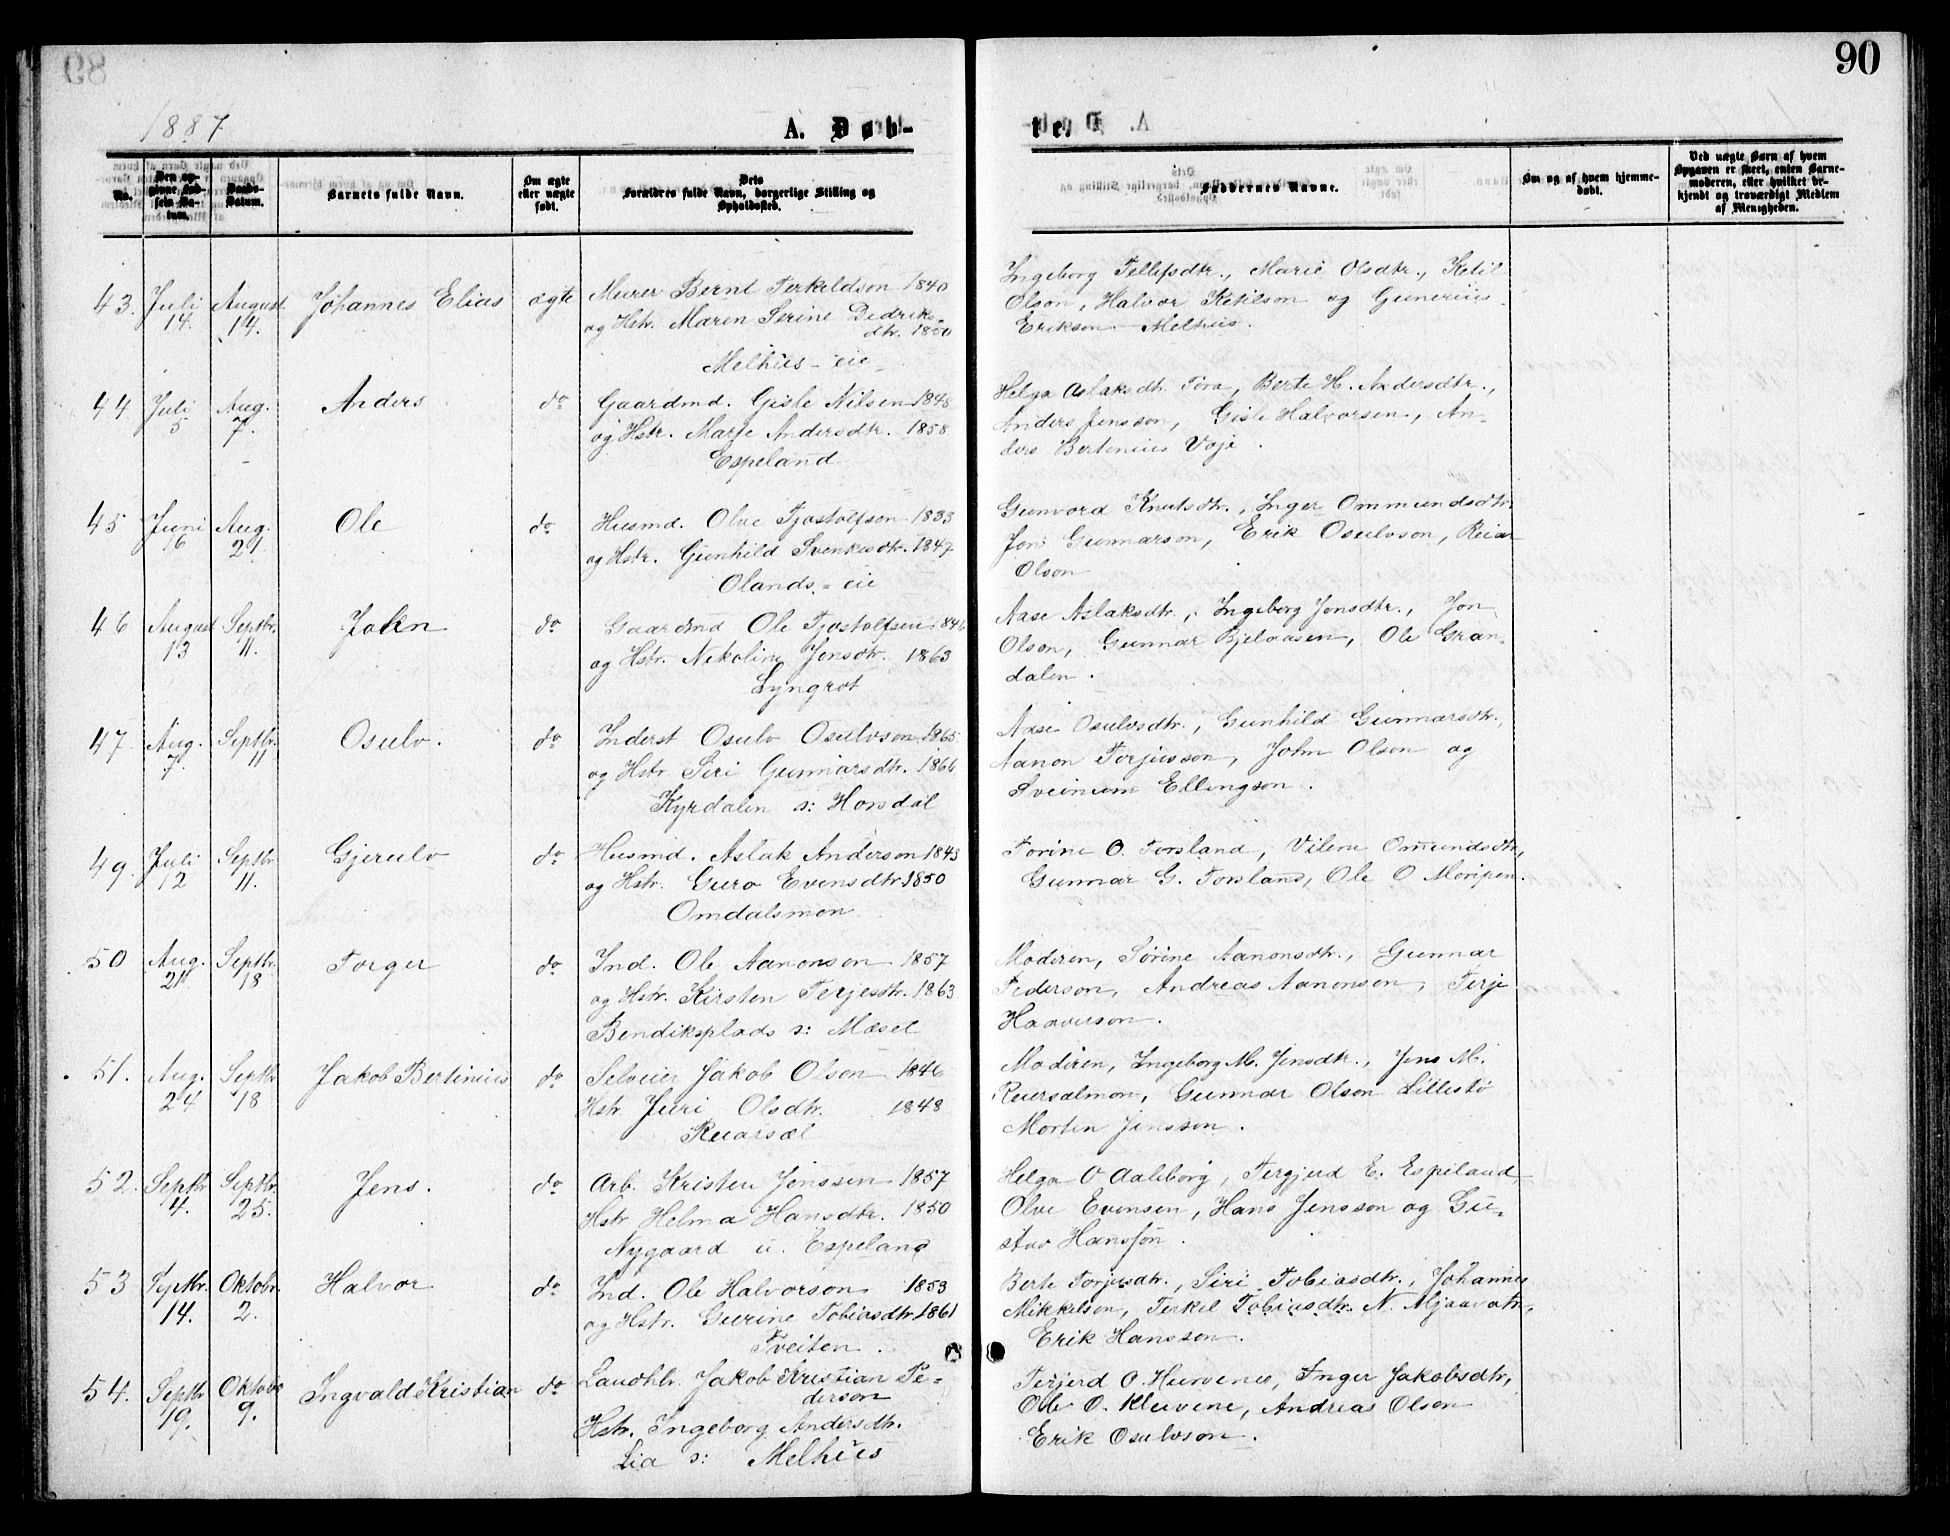 90
1887
A. Døb-
te.
No.
Den opgivne Fødsels Datum.
Daabs-Datum.
Barnets fulde Navn.
Om ægte eller uægte født.
Dets Forældres fulde Navn, borgerlige Stilling og Opholdssted.
Faddernes Navne.
Om og af hvem hjemmedøbt.
Ved uægte Børn af hvem Opgaven er skeet, enten Barnemoderen, eller hvilket bekjendt og troværdigt Medlem af Menigheden.
43. Juli 14. August 14. Johannes Elias ægte Murer Bernt Terkeldson 1840
og Hstr. Maren Serine Didriks-
dtr. 1850
Melhus-eie
Ingeborg Tellefsdtr., Marie Olsdtr., Ketil
Olson, Halvor Ketilson og Gunerius
Erikson Melhus.
44 Juli 5 Aug. 7. Anders do Gaardmd. Gisle Nilsen 1848
og Hstr. Marje Andersdtr. 1858
Espeland
Helga Aslaksdtr. Tora, Berte H. Andersdtr.,
Anders Jensson, Gisle Halvorsen, An-
ders Bertenius Voje.
45 Juni 16 Aug. 21. Ole do Husmd. Olve Tjostolfson 1833
og Hstr. Gunhild Svenkesdtr. 1847
Olands-eie
Gunvord Knutsdtr., Inger Ommundsdtr.
Jon Gunnarson, Erik Osulvson, Reiar
Olson
46 August 13 Septbr. 11. John do Gaardmd Ole Tjostolfsen 1846
og Hstr. Nikoline Jensdtr. 1863
Lyngrot
Aase Aslaksdtr., Ingeborg Jonsdtr., Jon
Olson, Gunnar Bjelaasen, Ole Gran-
dalen.
47. Aug. 7. Septbr. 11 Osulv. do Inderst Osulv Osulvson 1865
og Hstr Siri Gunnarsdtr. 1866
Kyrdalen s: Horsdal
Aase Osulvsdtr., Gunhild Gunnarsdtr.,
Aanon Torjusson, John Olson og
Sveinum Ellingson.
49. Juli 12 Septbr 11. Gjerulv do Husmd. Aslak Anderson 1843
og Hstr. Guro Evensdtr 1850
Omdalsmon
Torine O. Torsland, Vilene Omundsdtr,
Gunnar G. Torsland, Ole O Moripen.
50 Aug. 21 Septbr. 18 Torger do Ind. Ole Aanonson 1857
og Hstr. Kirsten Terjesdtr. 1863
Bendiksplads s: Mæsel
Moderen, Sørine Aanonsdtr., Gunnar
Pederson, Andreas Aanonsen, Terje
Haaverson.
51. Aug. 24 Septbr 18 Jakob Bertinius do Selveier Jakob Olsen 1846
Hstr Juri Olsdtr. 1848
Reiarsæl
Moderen, Ingeborg M. Jensdtr., Jens M.
Reiersælmon, Gunnar Olson Lillestø
Morten Jensson.
52. Septbr 4. Septbr. 25. Jens. do Arb. Kristen Jenssen 1857
Hstr Helma Hansdtr. 1850
Nygaard u. Espeland
Helga O Aaleborg, Tergjerd E. Espeland,
Olve Evensen, Hans Jensson og Gu-
stav Hansson.
53 Septbr. 14. Oktobr. 2. Halvor do Ind. Ole Halvorson 1853
og Hstr. Gurine Tobiasdtr. 1861
Tveiten.
Berte Torjusdtr., Siri Tobiasdtr., Johannes
Mikkelson, Terkel Tobiasdtr. N. Mjaavatn,
Erik Hansson.
54. Septbr 19. Oktobr 9. Ingvald Kristian do Landhl. Jakob Kristian Pe-
derson
Hstr. Ingeborg Andersdtr.
Lia s: Melhus
Terjerd O. Hurvenes, Inger Jakobsdtr,
Ole O. Klevene, Andreas Olson
Erik Osulvson.